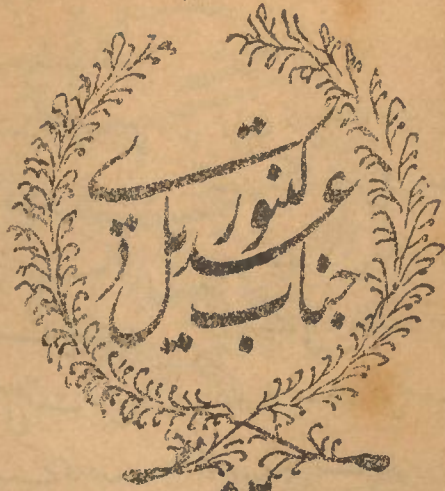 جناب عدیل کنتوری